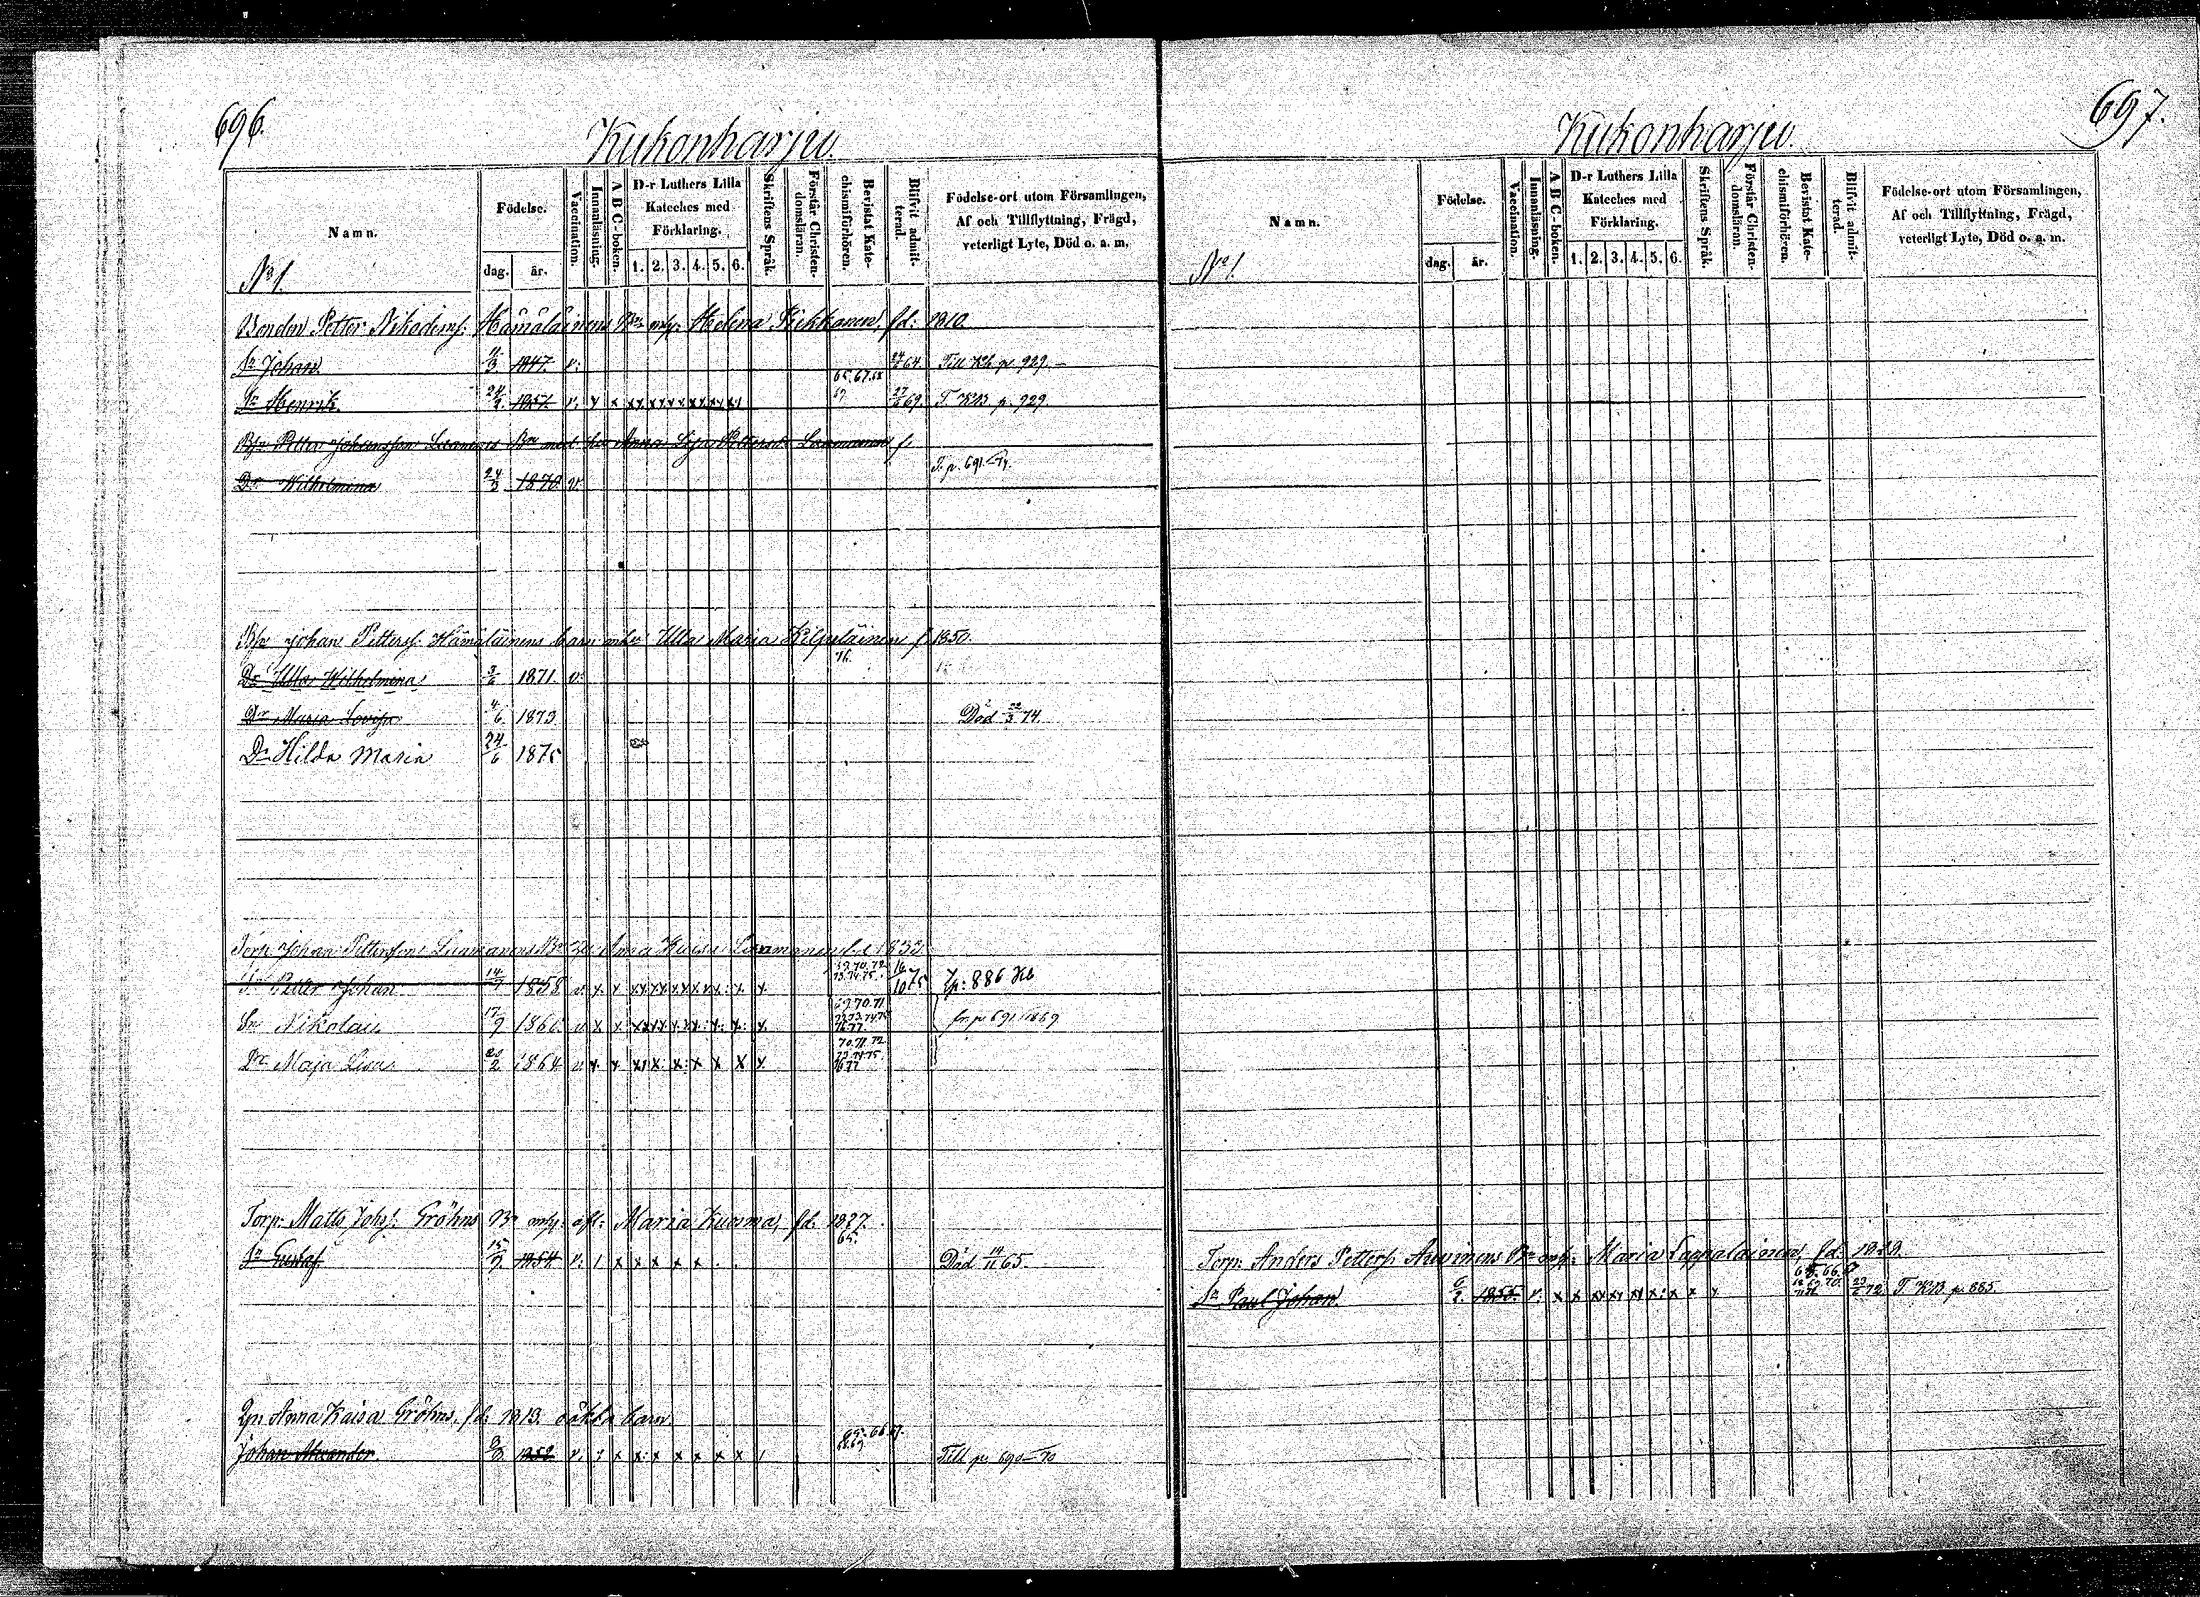 696.
Kukonharju.
Namn.
Födelse.
dag. år.
Vaccination.
Innanläsning.
A B C-boken.
D-r Luthers Lilla Kateches med Förklaring.
1. 2. 3. 4. 5. 6.
Skriftens Språk.
Förstår Christendomsläran.
Bevistat Katechismiförhören.
Blifvit admitterad.
Födelse-ort utom Församlingen, Af och Tillflyttning, Frägd, veterligt Lyte, Död o. a. m.
No 1.
Bonden Petter Nikodemss: Hämäläinens Bn m/h: Helena Kiekkonen, fd: 1810.
Sn Johan 11/3 1847. v: 24/6 64. Till Kb. p. 929.
65. 67. 68
Sn Henrik 24/2 1851 v: x x xx xx xx xx xx xx 69 27/6 69. T. KB p. 929
Petter Johansson Bn med Anna Lisa Pettersdr f.
T. p. 691. 74.
Dr Wilhelmina 24/3 1870 v.
Johan Petterss. Hämäläinens barn mhu Ulla Maria Kilpeläinen f. 1850.
76.
Dr Ulla Wilhelmina 3/6 1871. v.
Dr Maria Lovisa 4/6 1873. Död 22/3 74.
Dr Hilda Maria 24/6 1875
Torp. Johan Pettersson Anna Kaisa fd 1833
69. 70. 72
Sn Petter Johan 14/7 1858 v x x xx xx xx xx xx x x 73. 74. 75. 16/10 75 Tp: 886 Kb
69. 70. 71.
Sn Nikolaus 17/9 1860. v x x xx xx xx xx x: x: x 72 73. 74 75 76 77 fr. p 691. 1869
70. 71. 72
Dr Maja Lisa 20/2 1864 v x x xx x: x: x x x x 73. 74. 75. 76 77
Torp: Matts Johss: Gröhns Bn m/h: afl: Maria Kuosma, fd: 1827.
65.
Sn Gustaf 15/9 1854 v: 1 x x x x x . . Död 14/11 65.
Anna Kaisa Gröhns, fd: 1813. oäkta barn.
65. 66. 67.
Johan Alexander. 8/8 1852 v: x x x: x x x x x 1 68. 69. Till p: 690 70
697.
Kukonharju.
Namn.
Födelse.
dag. år.
Vaccination.
Innanläsning.
A B C-boken.
D-r Luthers Lilla Kateches med Förklaring.
1. 2. 3. 4. 5. 6.
Skriftens Språk.
Förstår Christendomsläran.
Bevistat Katechismiförhören.
Blifvit admitterad.
Födelse-ort utom Församlingen, Af och Tillflyttning, Frägd, veterligt Lyte, Död o. a. m.
No 1.
Torp: Anders Petterss. Auvinens Bn m/h: Maria Lappalainen, fd: 1829.
Sn Paul Johan. 6/2. 1855. v: x x xx xx xx x: x x x 72 T. KB. p: 885.